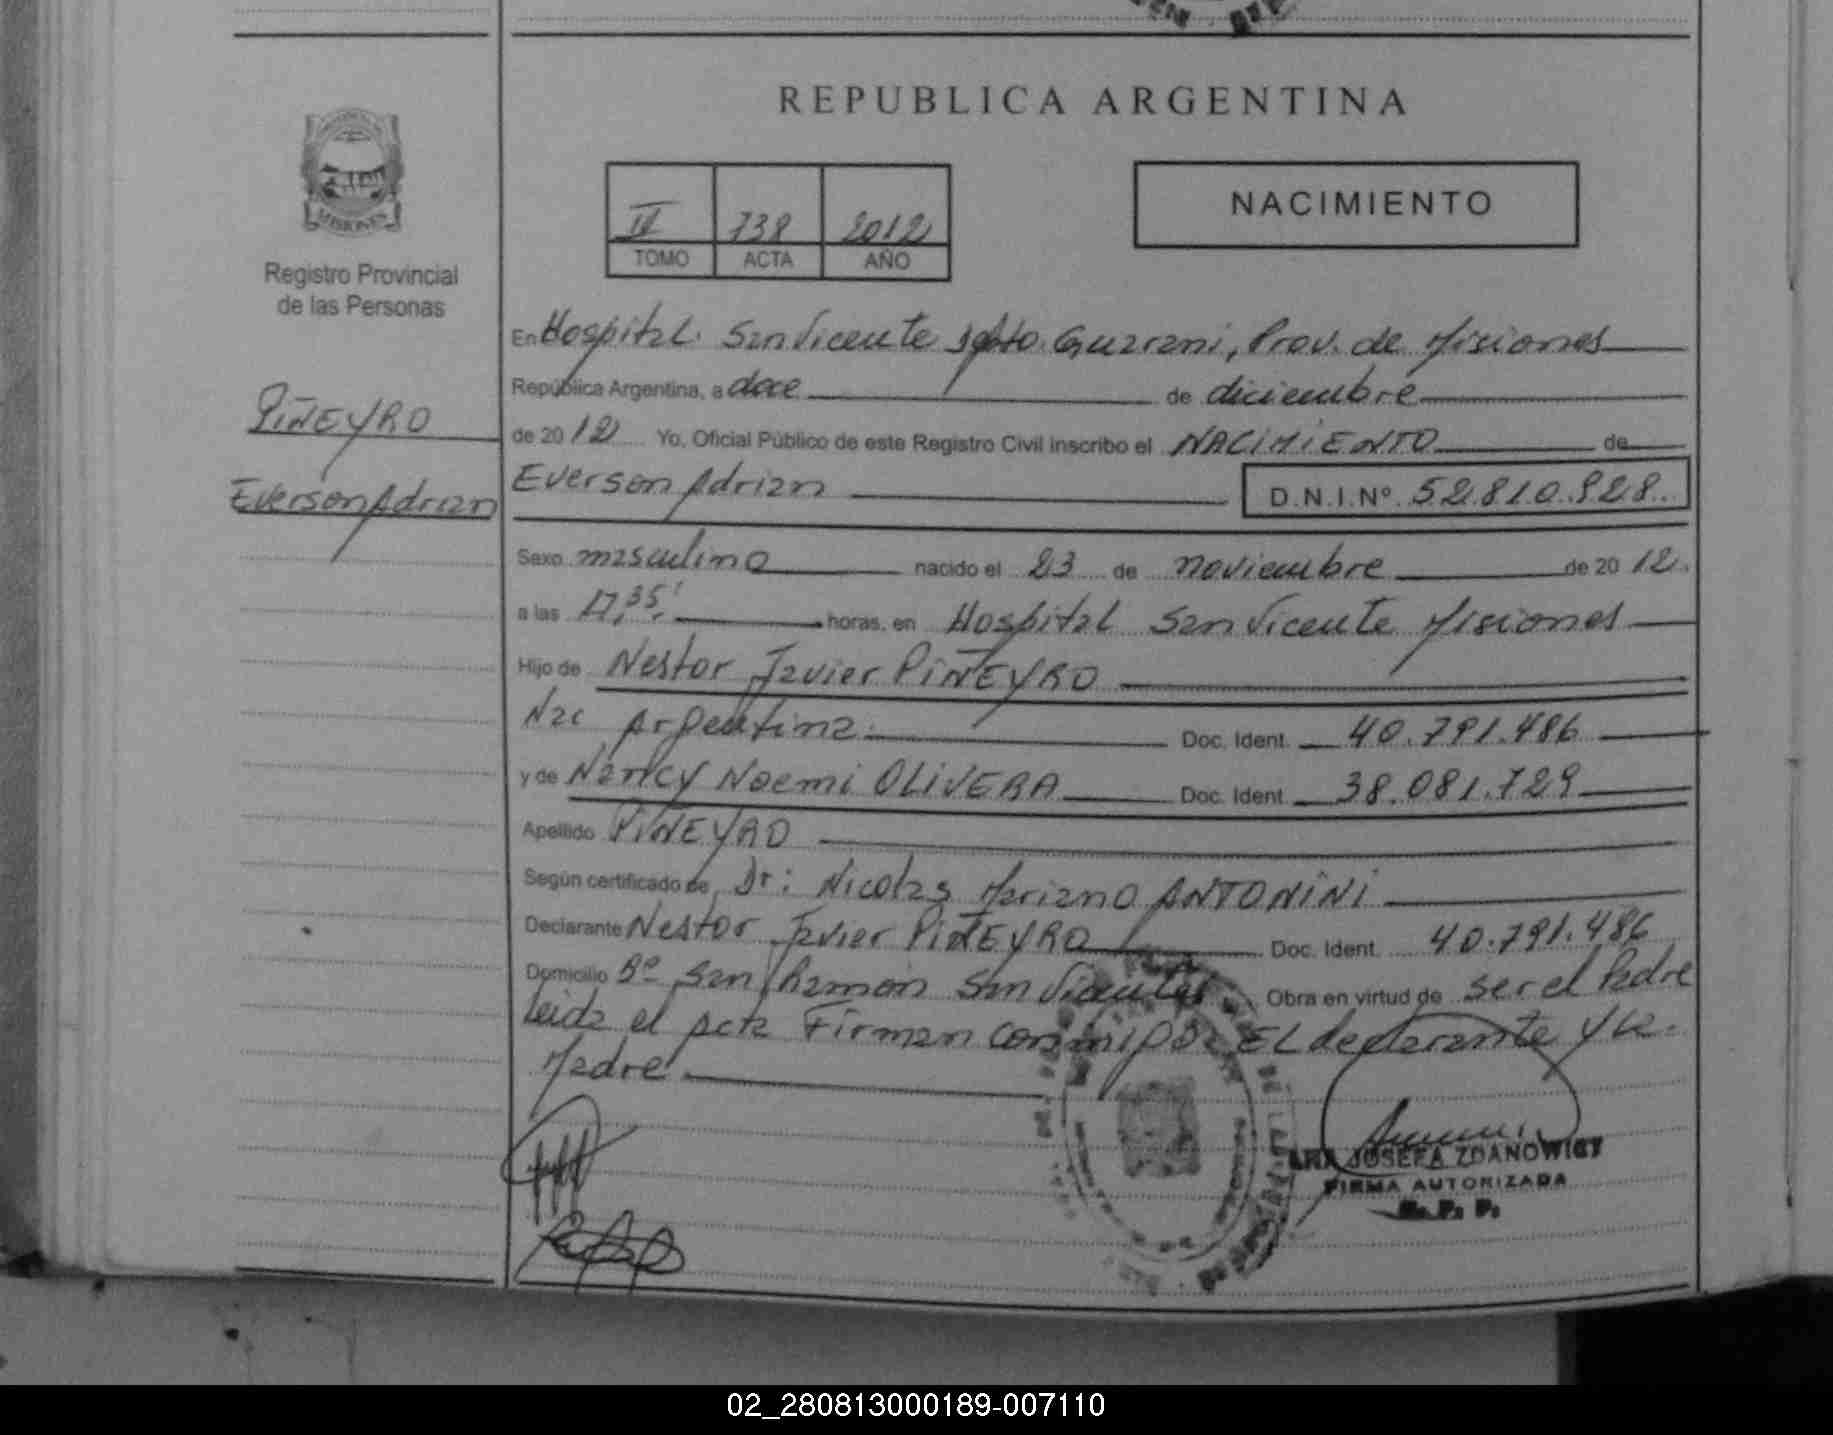 REPUBLICA ARGENTINA
MISIONES
Registro Provincial
de las Personas
PIÑEYRO
Everson Adrian
II 738 2012
TOMO ACTA AÑO
NACIMIENTO
En Hospital San Vicente Dpto. Guarani, Prov. de Misiones
República Argentina, a doce de diciembre
de 2012 Yo, Oficial Público de este Registro Civil inscribo el NACIMIENTO de
Everson Adrian D.N.I.Nº 52.810.928.
Sexo masculino nacido el 23 de noviembre de 2012.
a las 17,35' horas, en Hospital San Vicente Misiones
Hijo de Nestor Javier PIÑEYRO
Nac Argentina. Doc. Ident. 40.791.486
y de Nancy Noemi OLIVERA Doc. Ident. 38.081.729
Apellido PIÑEYRO
Según certificado de Dr: Nicolas Mariano ANTONINI
Declarante Nestor Javier PIÑEYRO Doc. Ident. 40.791.486
Domicilio Bº San Ramon San Vicente Obra en virtud de ser el Padre
Leida el Acta Firman conmigo: El declarante y la
Madre
JOSEFA ZDANOWICZ
FIRMA AUTORIZADA
R. P. P.
02_280813000189-007110